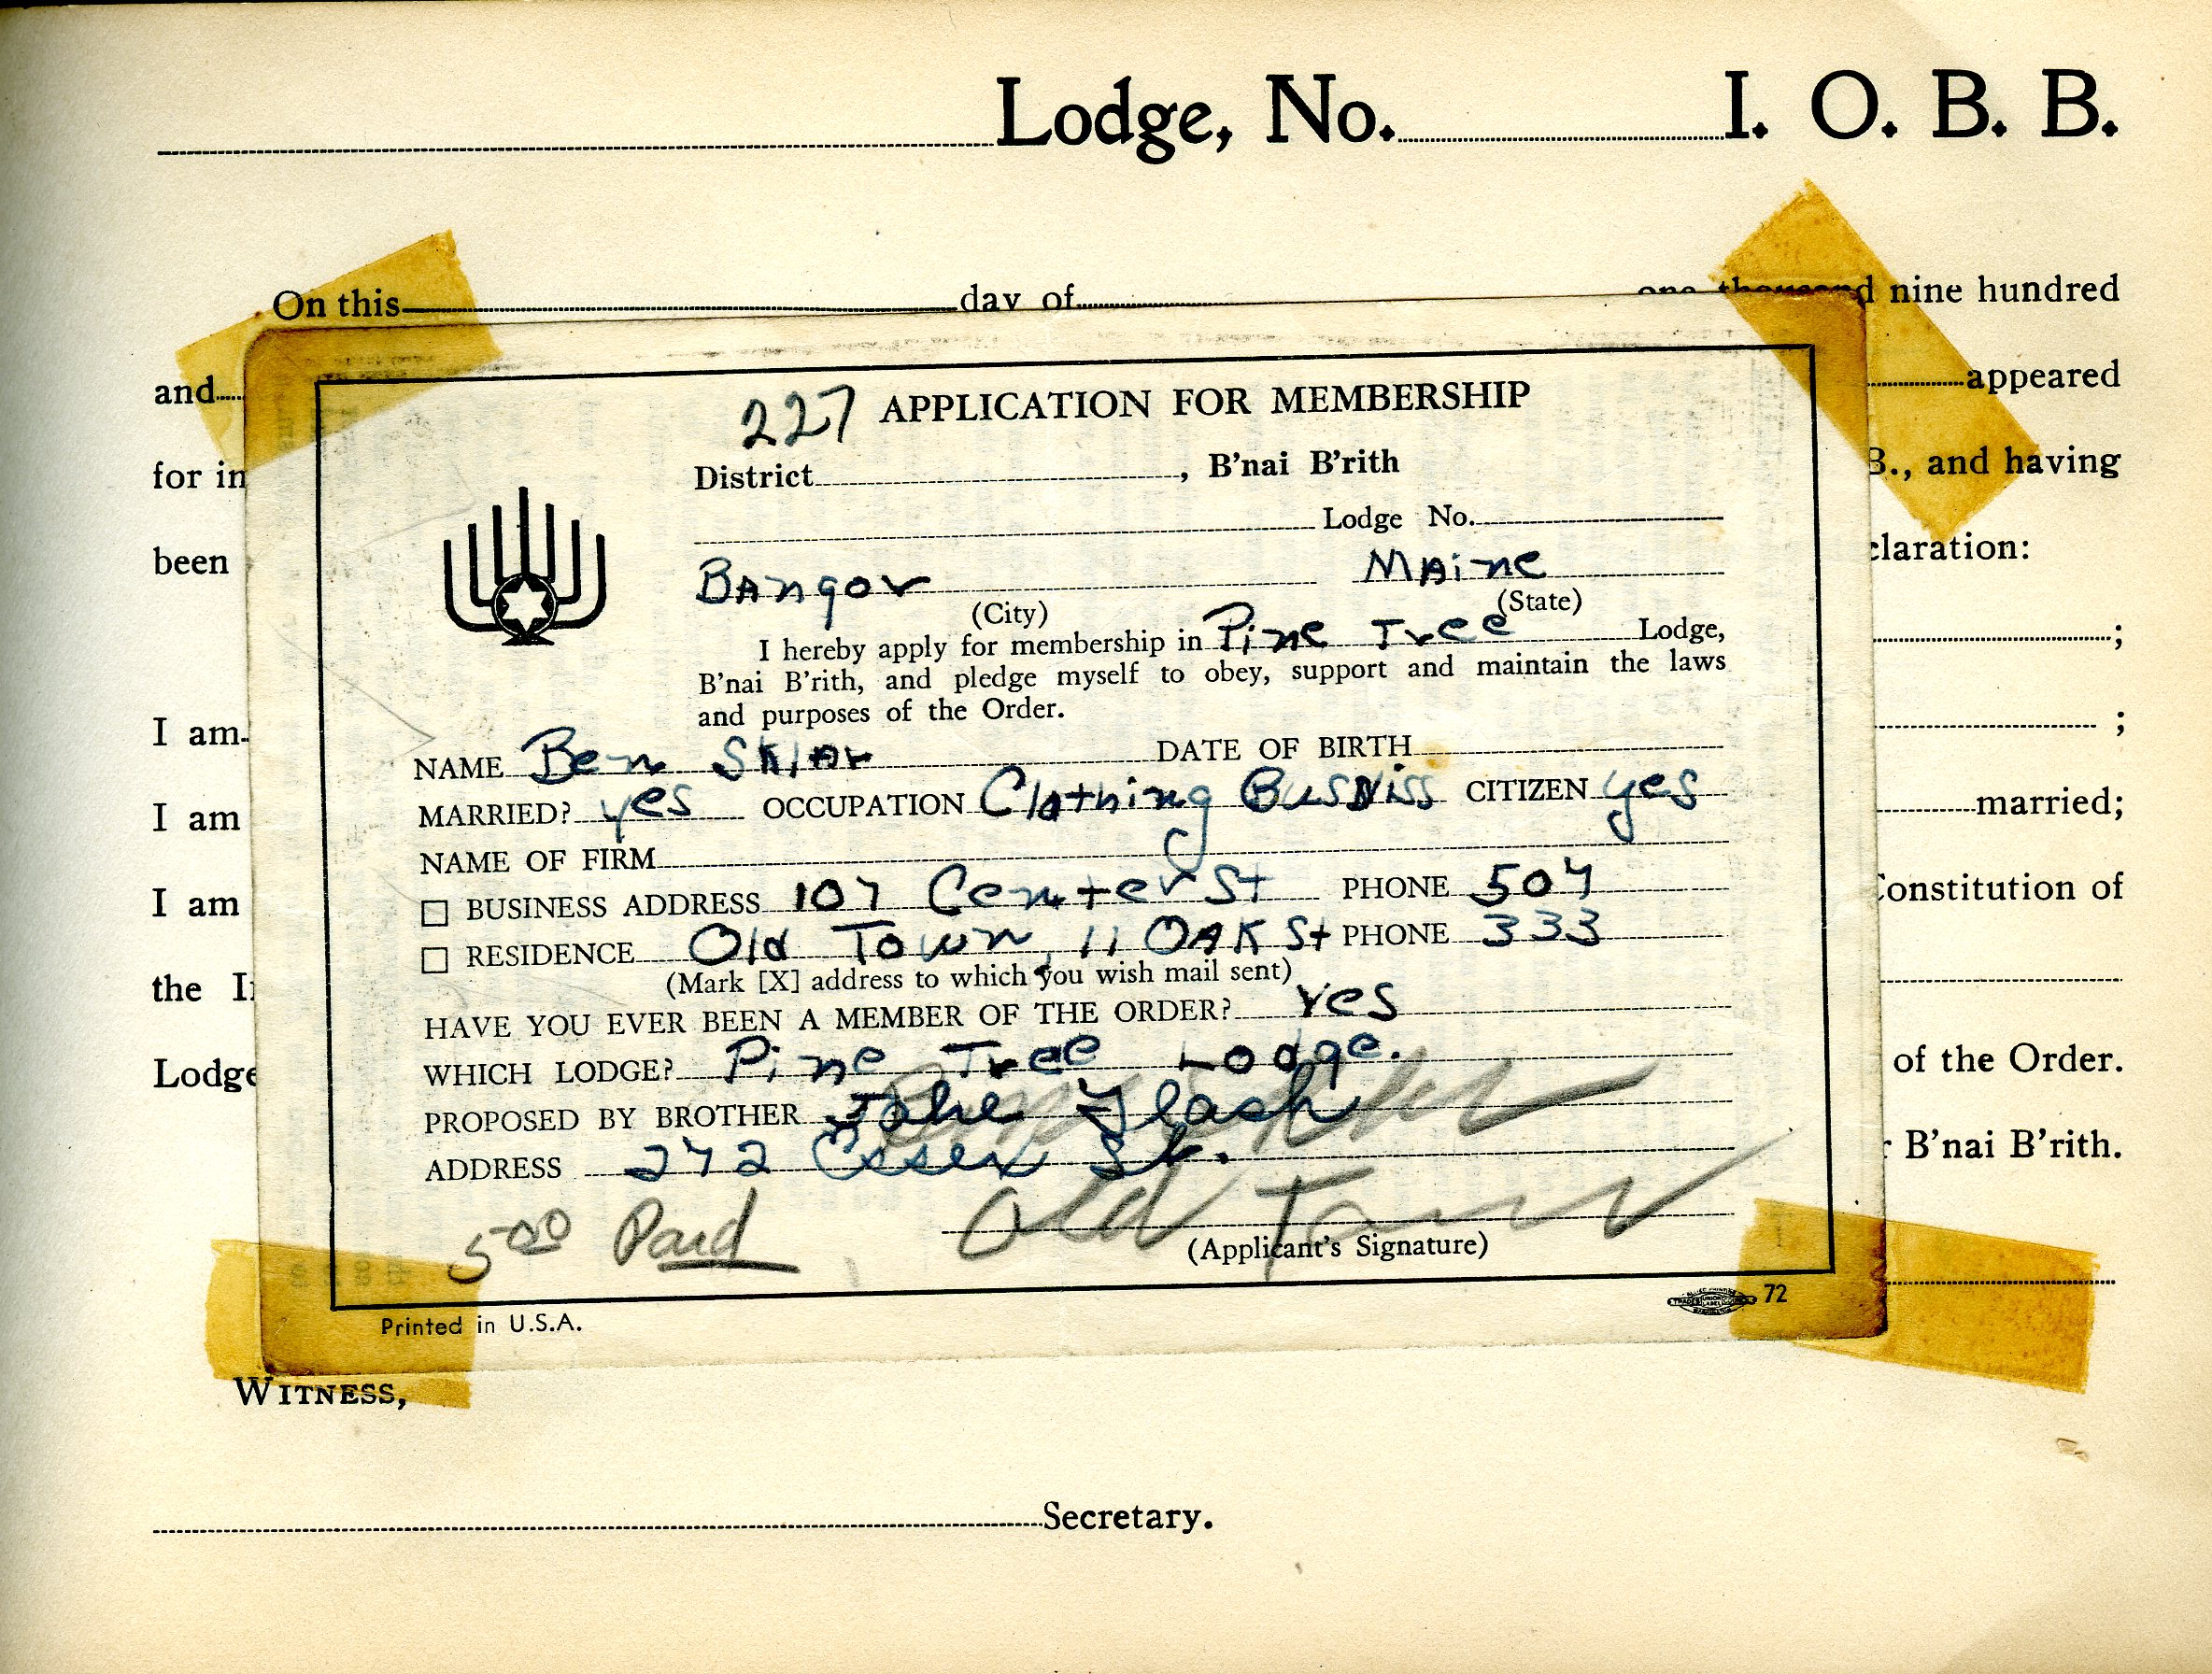 Lodge, No. I. O. B. B.
On this day of one thousand nine hundred
and appeared
for in B., and having
been claration:
;
I am ;
I am married;
I am Constitution of
the I
Lodge of the Order.
B'nai B'rith.
227 APPLICATION FOR MEMBERSHIP
District , B'nai B'rith
Lodge No.
Bangor Maine
(City) (State)
I hereby apply for membership in Pine Tree Lodge,
B'nai B'rith, and pledge myself to obey, support and maintain the laws
and purposes of the Order.
NAME Ben Sklar DATE OF BIRTH
MARRIED? yes OCCUPATION Clothing Busniss CITIZEN yes
NAME OF FIRM
BUSINESS ADDRESS 107 Center St PHONE 507
RESIDENCE Old Town, 11 OAK St PHONE 333
(Mark [X] address to which you wish mail sent)
HAVE YOU EVER BEEN A MEMBER OF THE ORDER? yes
WHICH LODGE? Pine Tree Lodge.
PROPOSED BY BROTHER
ADDRESS 272 Essex St.
5.00 Paid Old Town
(Applicant's Signature)
Printed in U.S.A. 72
WITNESS,
Secretary.